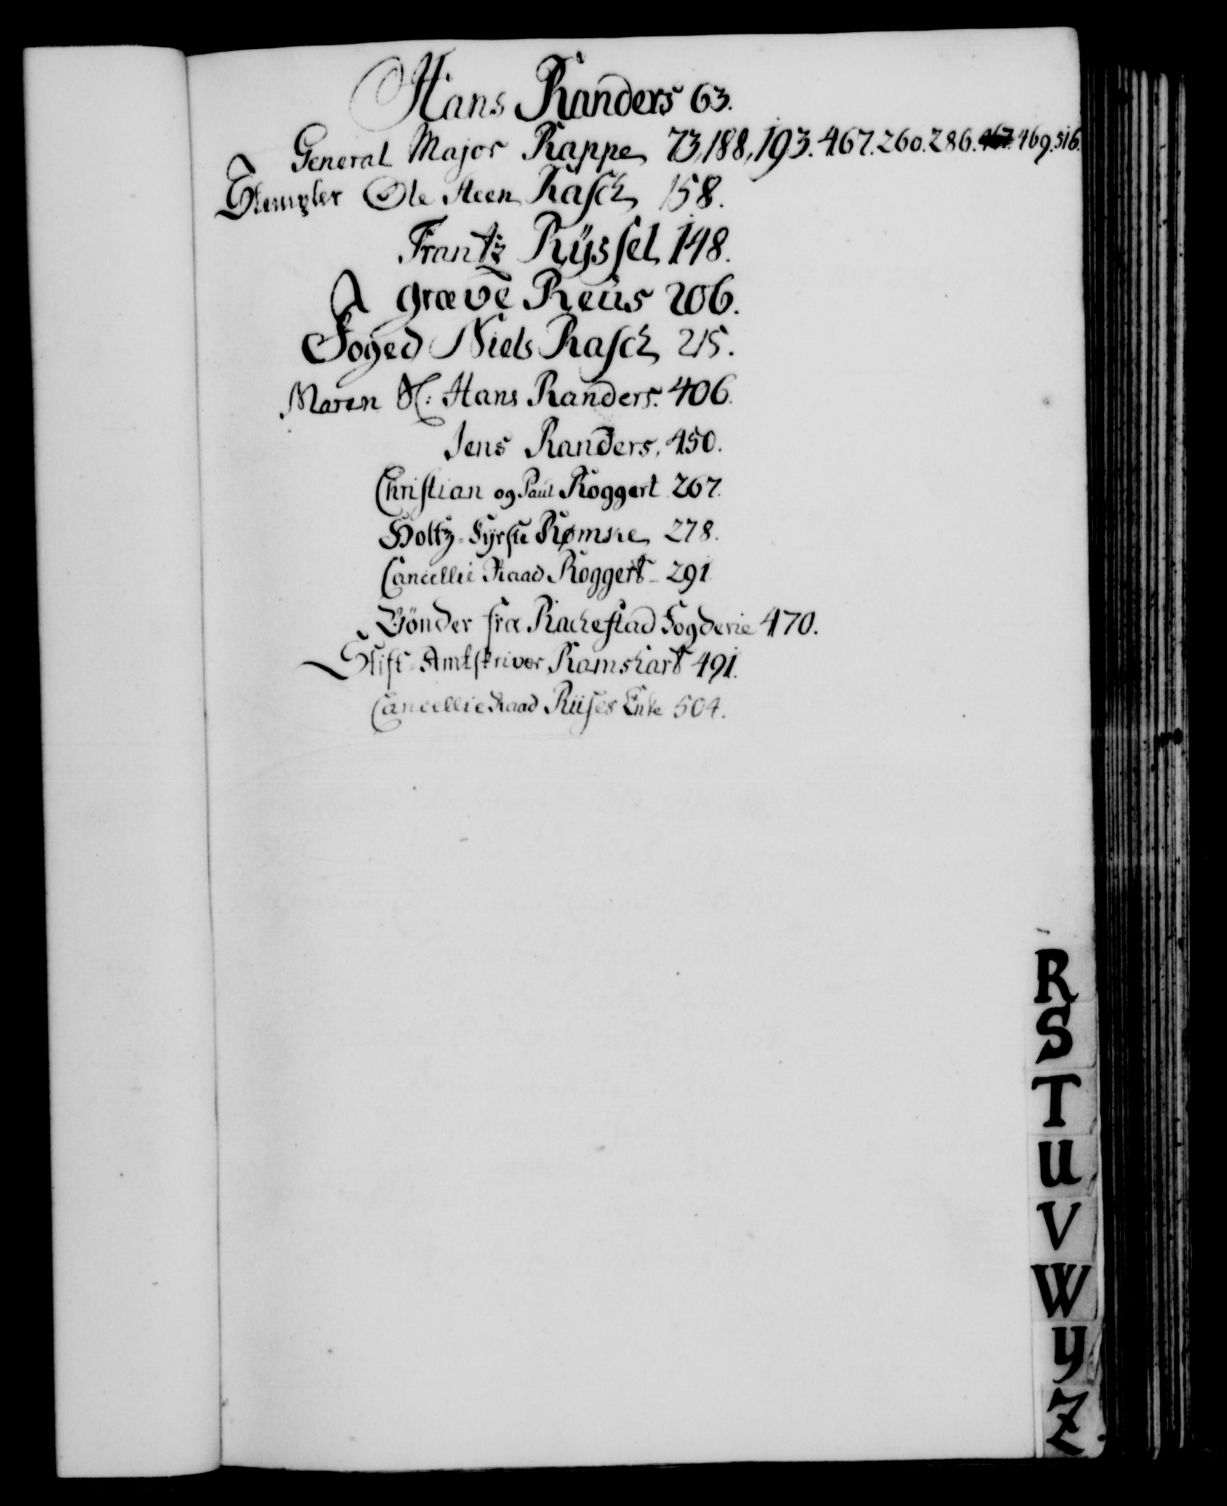 Hans Randers 63.
General Major Rappe 73, 188, 193. 467. 260. 286. 467. 469. 516.
Stempler Ole Steen Rasch 158.
Frantz Ryssel 148.
Græve Reus 206.
Foged Niels Rasch 215.
Maren Sl: Hans Randers. 406.
Jens Randers, 450.
Christian og Paul Roggert 267.
Holtz-Fyrste Rømske 278.
Cancellie Raad Roggert 291
Bönder fra Rachestad Fogderie 470.
Stift-Amtskriver Ramshart 491.
Cancellie Raad Riises Enke 504.
R
S
T
U
V
W
Y
Z